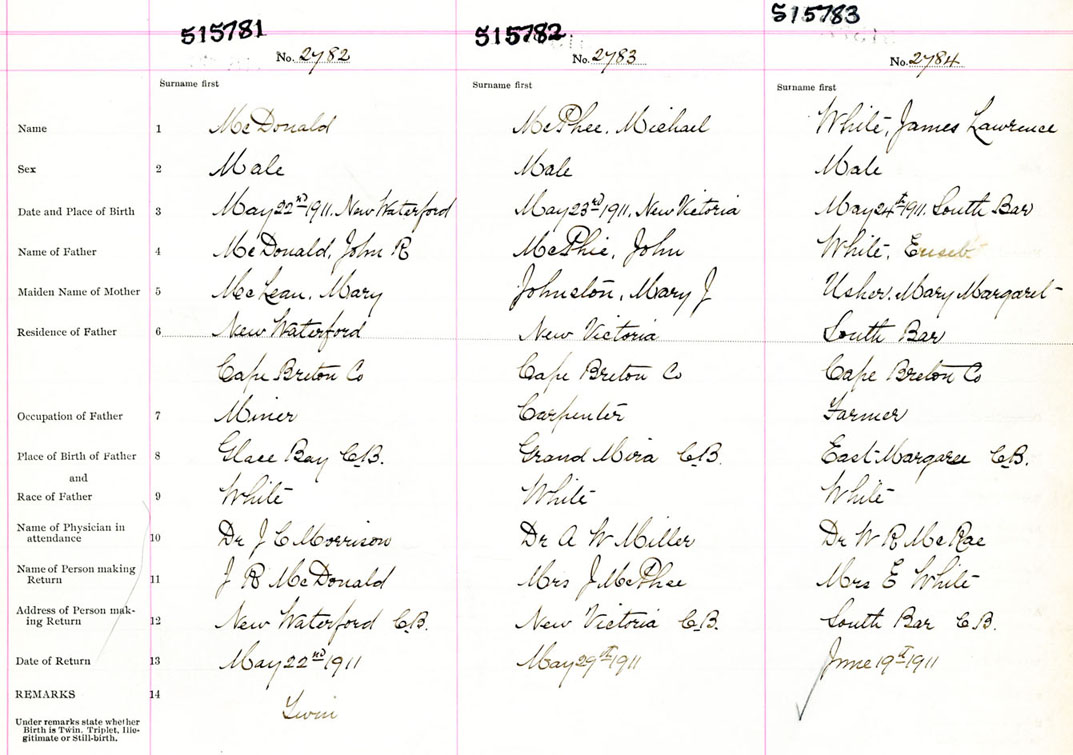 515781 515782 515783
No. 2782 No. 2783 No. 2784
Surname first Surname first Surname first
Name 1 McDonald McPhee, Michael White, James Lawrence
Sex 2 Male Male Male
Date and Place of Birth 3 May 22nd 1911. New Waterford May 23rd 1911. New Victoria May 24th 1911. South Bar
Name of Father 4 McDonald, John R McPhie, John White, Euseb
Maiden Name of Mother 5 McLean, Mary Johnston, Mary J Usher, Mary Margaret
Residence of Father 6 New Waterford New Victoria South Bar
Cape Breton Co Cape Breton Co Cape Breton Co
Occupation of Father 7 Miner Carpenter Farmer
Place of Birth of Father 8 Glace Bay C.B. Grand Mira C.B. East Margaree C.B.
and
Race of Father 9 White White White
Name of Physician in
attendance 10 Dr J C Morrison Dr A W Miller Dr W R McRae
Name of Person making
Return 11 J R McDonald Mrs J McPhee Mrs E White
Address of Person mak-
ing Return 12 New Waterford C.B. New Victoria C.B. South Bar C.B.
Date of Return 13 May 22nd 1911 May 29th 1911 June 19th 1911
REMARKS 14
Twin
Under remarks state whether
Birth is Twin. Triplet, Ille-
gitimate or Still-birth.